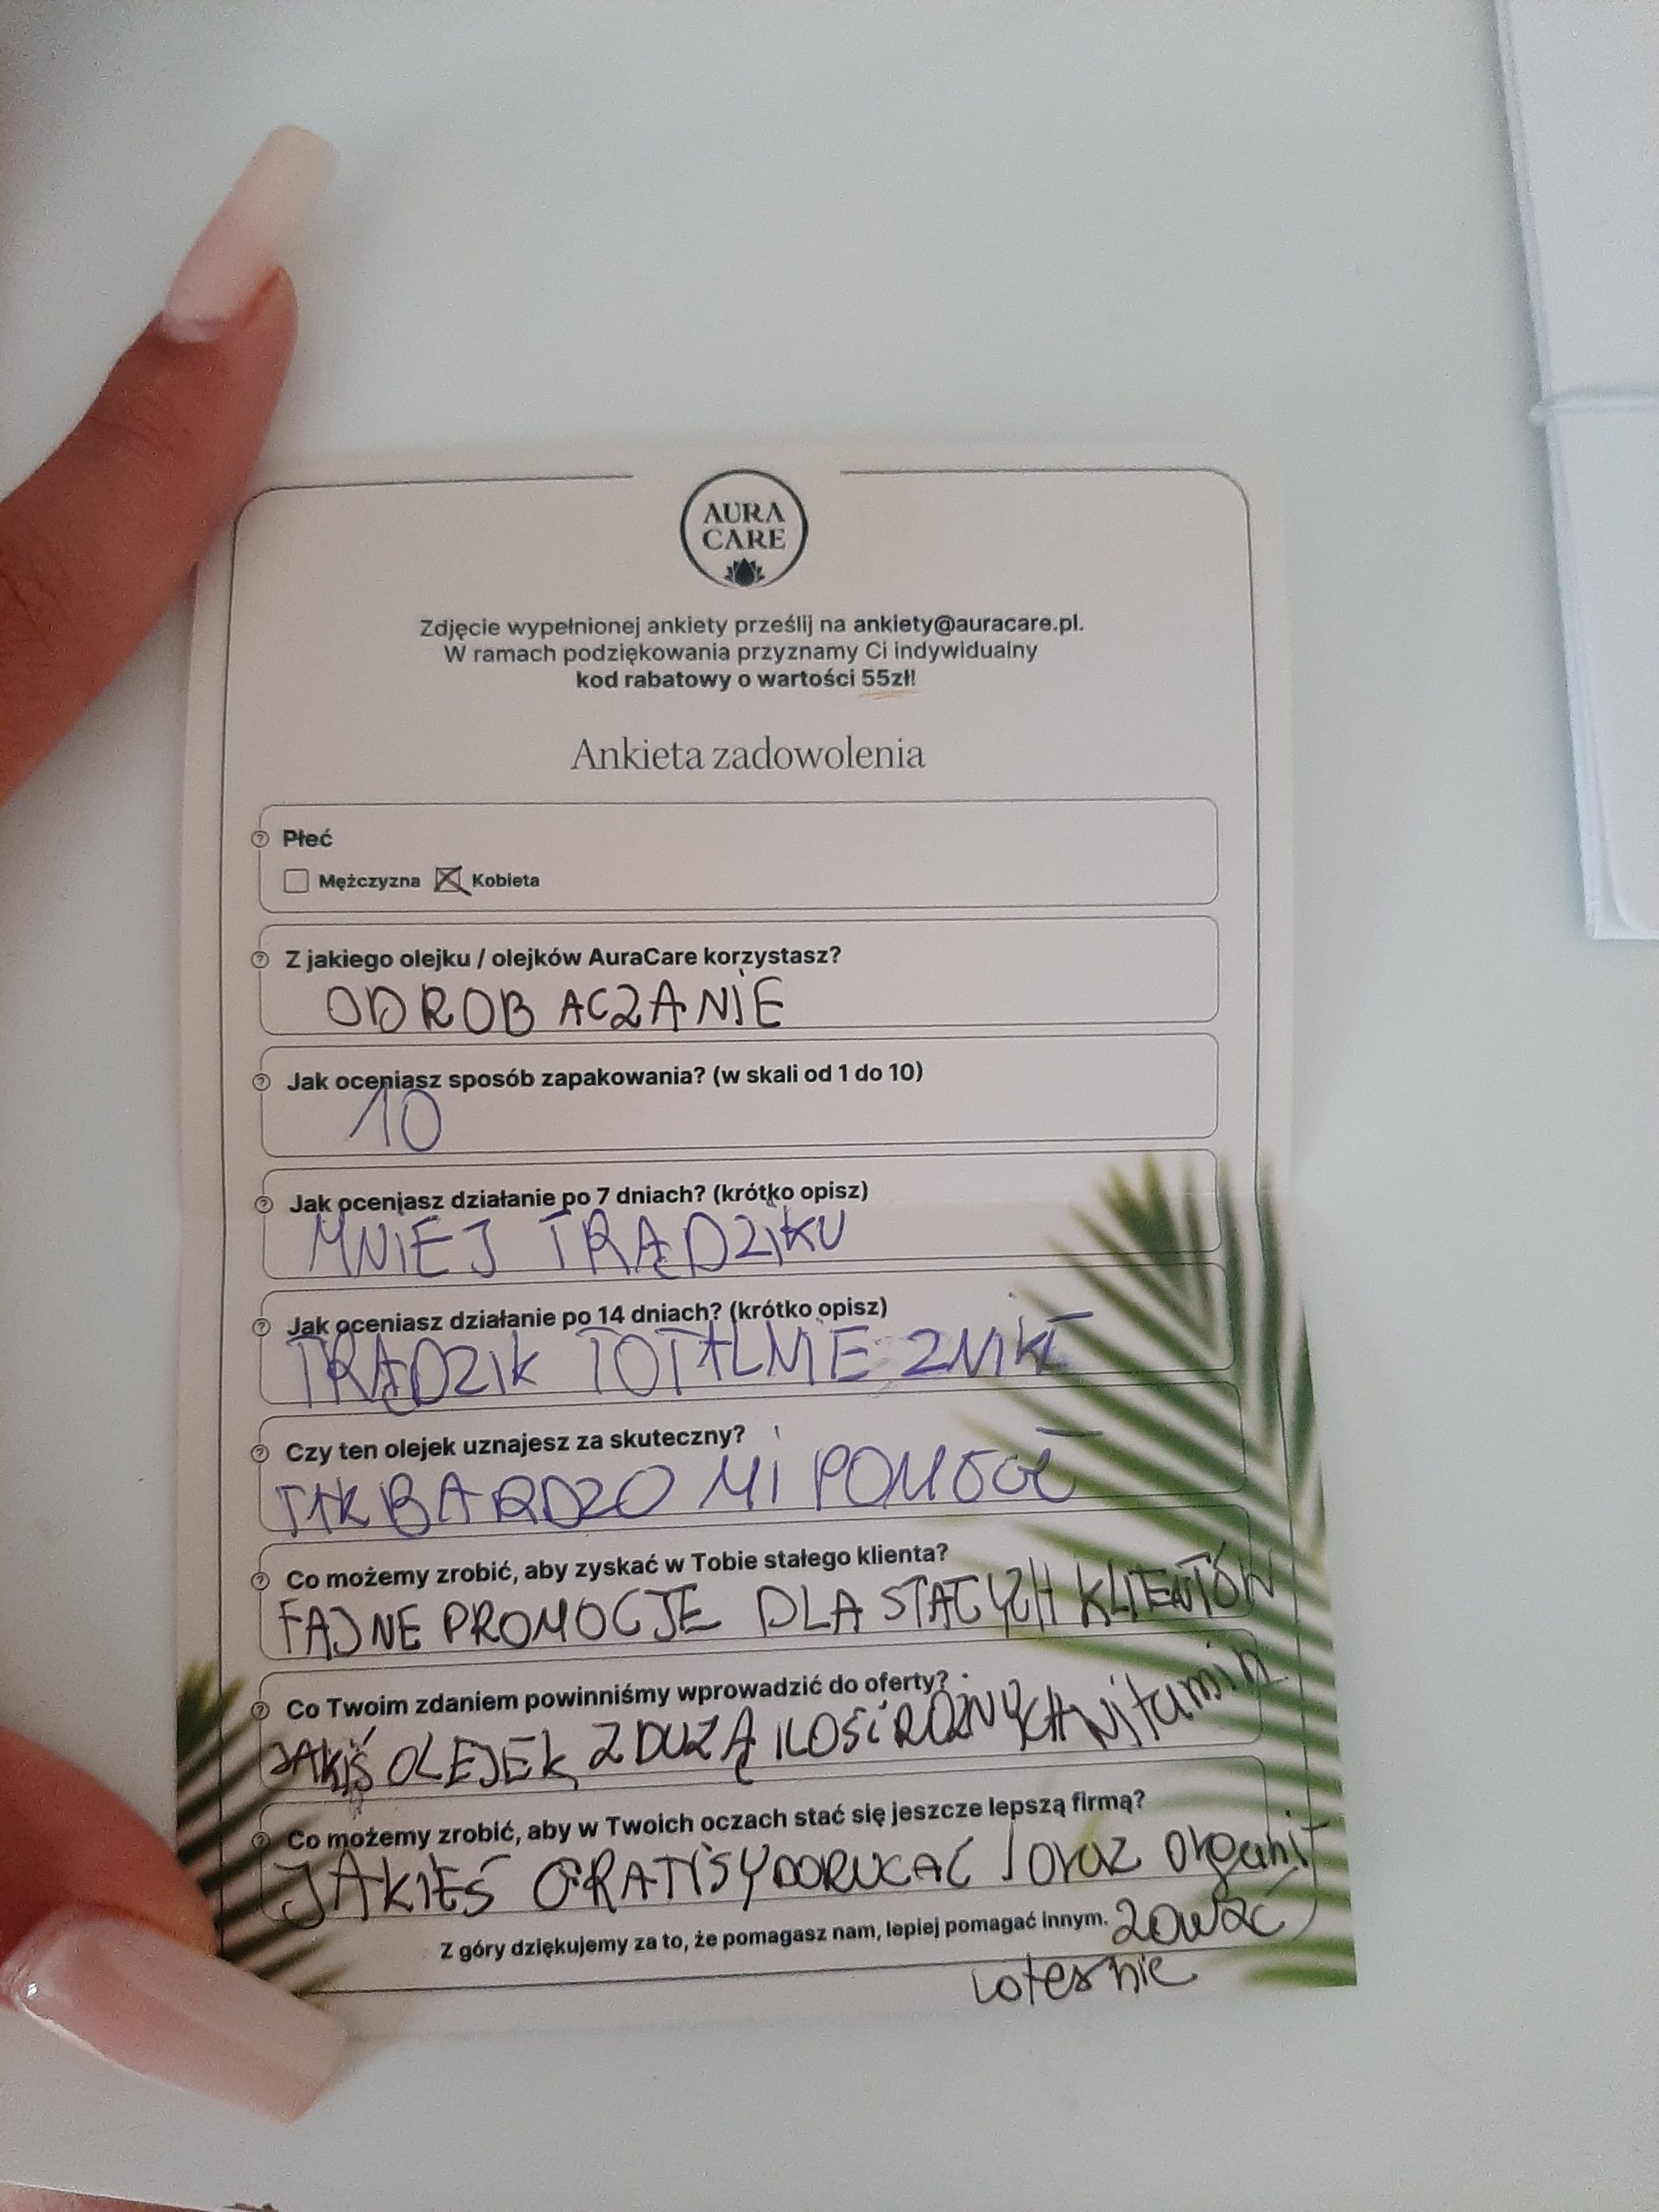 AURA
CARE
Zdjęcie wypełnionej ankiety prześlij na ankiety@auracare.pl.
W ramach podziękowania przyznamy Ci indywidualny
kod rabatowy o wartości 55zł!
Ankieta zadowolenia
Płeć
Mężczyzna Kobieta
Z jakiego olejku / olejków AuraCare korzystasz?
ODROBACZANIE
Jak oceniasz sposób zapakowania? (w skali od 1 do 10)
10
Jak oceniasz działanie po 7 dniach? (krótko opisz)
MNIEJ TRĄDZIKU
Jak oceniasz działanie po 14 dniach? (krótko opisz)
TRĄDZIK TOTALNIE ZNIKŁ
Czy ten olejek uznajesz za skuteczny?
TAK BARDZO MI POMÓGŁ
Co możemy zrobić, aby zyskać w Tobie stałego klienta?
FAJNE PROMOCJE DLA STAŁYCH KLIENTÓW
Co Twoim zdaniem powinniśmy wprowadzić do oferty?
JAKIŚ OLEJEK Z DUZĄ ILOŚĆI RÓŻNYCH witamin
Co możemy zrobić, aby w Twoich oczach stać się jeszcze lepszą firmą?
JAKIEŚ GRATISY DORUCAĆ oraz organi
Z góry dziękujemy za to, że pomagasz nam, lepiej pomagać innym. zować
loternie